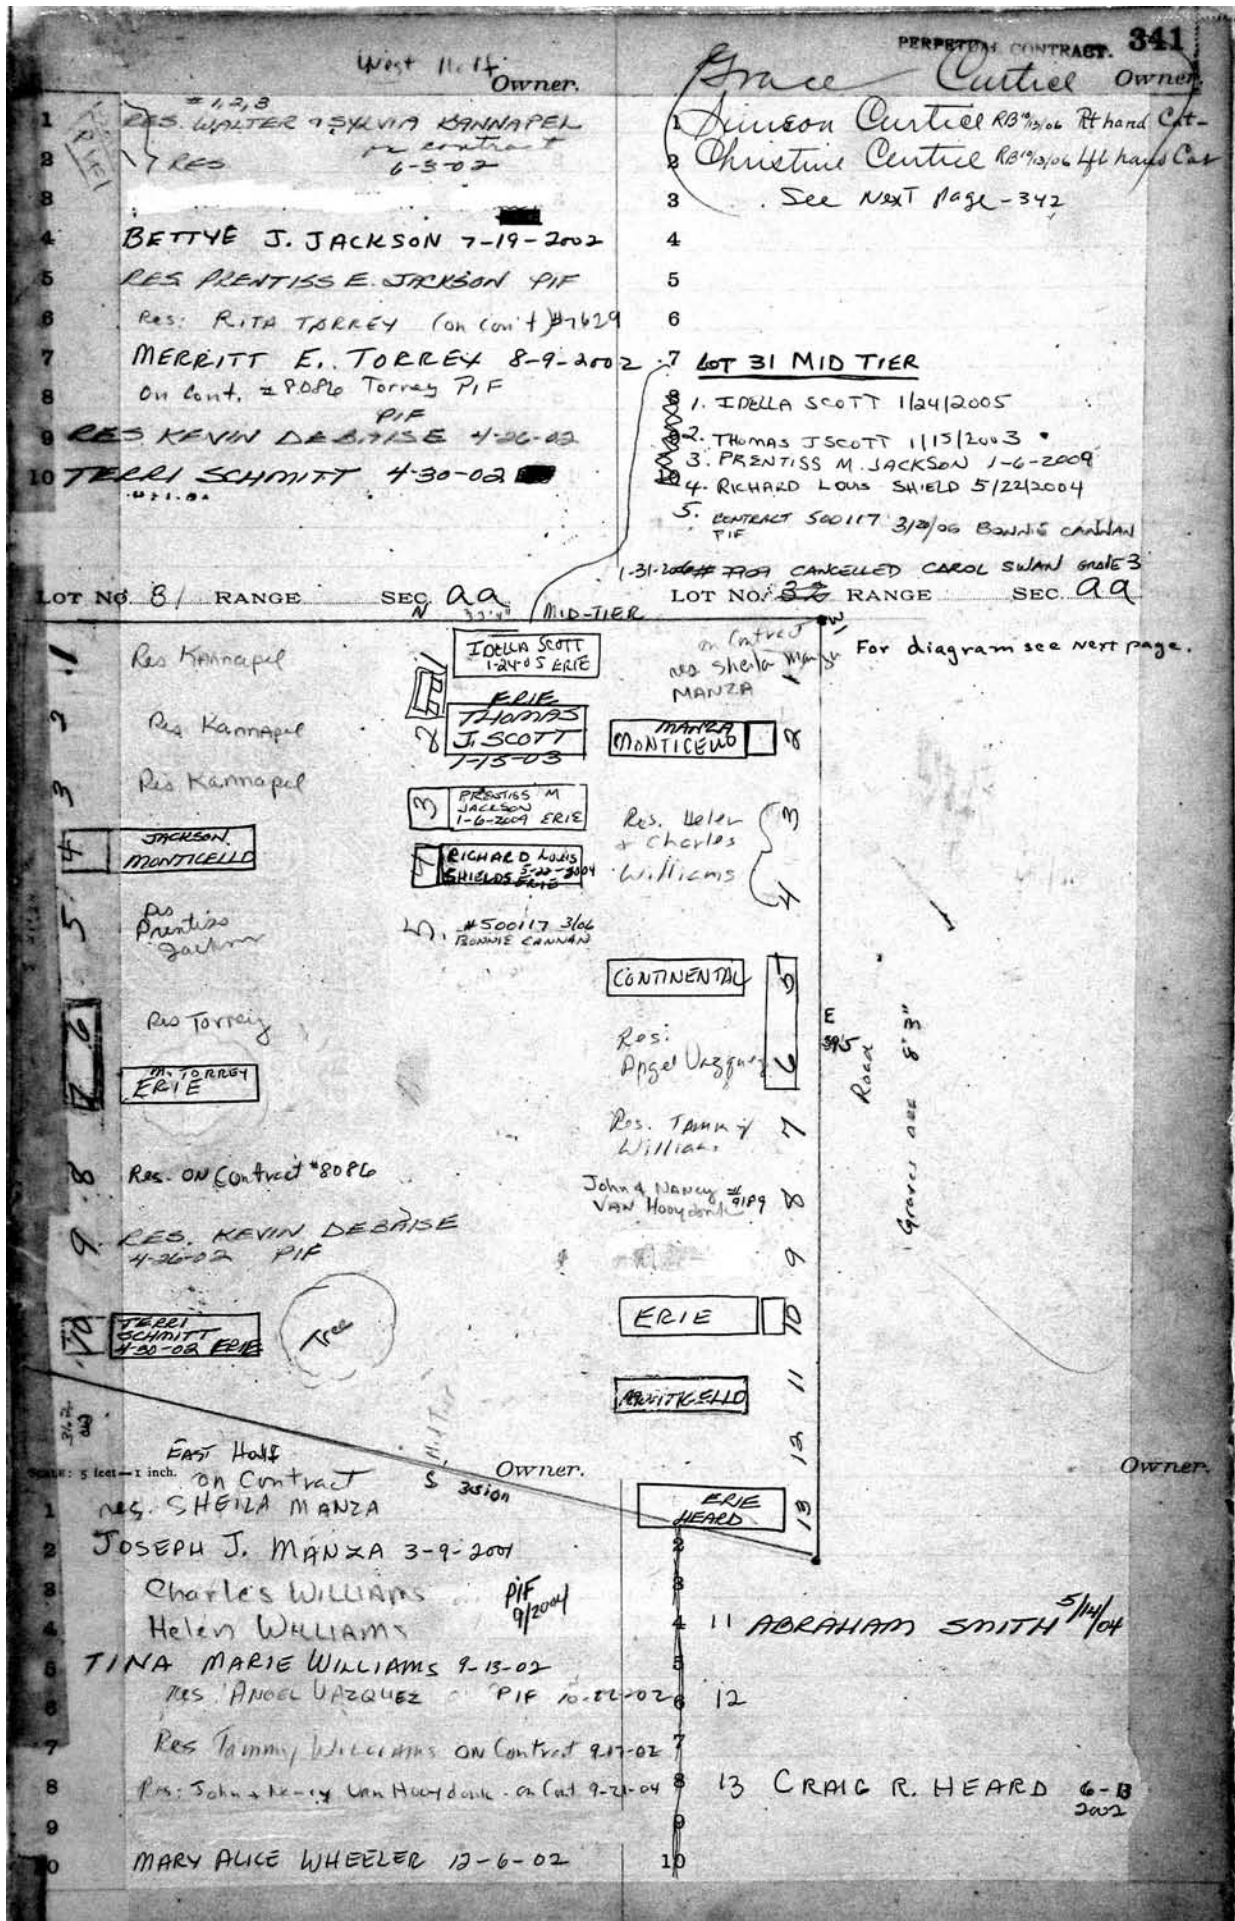 PERPETUAL CONTRACT. 341
West Half
Owner.
Grace Curtice Owner.
# 1, 2, 3
1 RES. WALTER & SYLVIA KANNAPEL
on contract
2 RES 6-3-02
3
4 BETTYE J. JACKSON 7-19-2002
5 RES PRENTISS E. JACKSON PIF
6 Res: RITA TORREY (on con't) #7629
7 MERRITT E. TORREY 8-9-2002
8 On Cont. #8086 Torrey PIF
PIF
9 RES KEVIN DEBAISE 4-26-02
10 TERRI SCHMITT 4-30-02
LOT NO. 8 RANGE SEC. aa
1 Simeon Curtice RB 10/13/06 Rt hand Cor
2 Christine Curtice RB 10/13/06 Lft hand Cor
3 See Next page - 342
4
5
6
7 LOT 31 MID TIER
8 1. IDELLA SCOTT 1/24/2005
9 2. THOMAS J SCOTT 1/15/2003
3. PRENTISS M. JACKSON 1-6-2009
10 4. RICHARD LOUIS SHIELD 5/22/2004
5. CONTRACT 500117 3/20/06 BONNIE CANNAN
PIF
1-31-2006 # 7909 CANCELLED CAROL SWAN GRAVE 3
LOT NO. 32 RANGE SEC. aa
N MID-TIER
W
For diagram see next page.
1 Res Kannapel
2 Res Kannapel
3 Res Kannapel
4 JACKSON
MONTICELLO
5 Res
Prentiss
Jackson
6 Res Torrey
7 M. TORREY
ERIE
8 Res. ON Contract #8086
9 RES. KEVIN DEBAISE
4-26-02 PIF
10 TERRI
SCHMITT
4-30-02 ERIE
Tree
1 IDELLA SCOTT
1-24-05 ERIE
ERIE
2 THOMAS
J. SCOTT
1-15-03
3 PRENTISS M
JACKSON
1-6-2009 ERIE
4 RICHARD LOUIS
SHIELDS 5-22-2004
ERIE
5. #500117 3/06
BONNIE CANNAN
on Contract
res Sheila Manza
MANZA
MANZA
MONTICELLO 2
Res. Helen 3
& Charles
Williams 4
CONTINENTAL 5
Res:
Angel Vazquez 6
Res. Tammy 7
Williams
John & Nancy #9189
VAN Hooydonk 8
9
ERIE 10
MONTICELLO 11
12
ERIE
HEARD 13
E
Road
Graves are 8' 3"
EAST Half
SCALE: 5 feet—1 inch.
on Contract
S
Owner.
Owner.
1 res. SHEILA MANZA
2 JOSEPH J. MANZA 3-9-2001
3 Charles WILLIAMS PIF
4 Helen WILLIAMS 9/2004
5 TINA MARIE WILLIAMS 9-13-02
6 res. ANGEL VAZQUEZ PIF 10-22-02
7 Res Tammy Williams ON Contract 9-17-02
8 Res: John & Nancy Van Hooydonk - on Cont 9-21-04
9
10 MARY ALICE WHEELER 12-6-02
2
3
4 11 ABRAHAM SMITH 5/14/04
5
6 12
7
8 13 CRAIG R. HEARD 6-13
2002
9
10